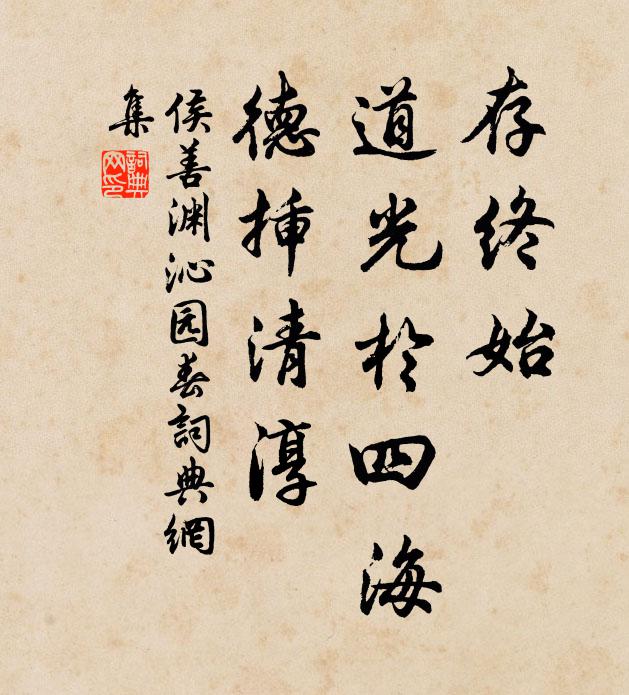 存终始
道光於四海
德挿清淳
侯善渊沁园春詞典網
集
詞典
网印